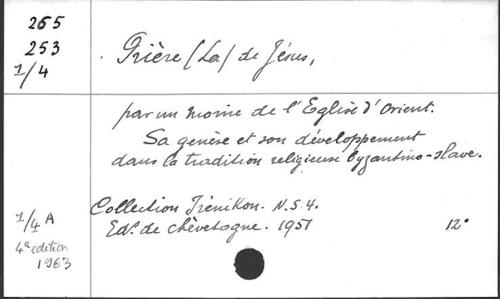 265
253
1/4
Prière (La) de Jésus,
par un moine de l'Eglise d'Orient.
Sa genèse et son développement
dans la tradition religieuse byzantino-slave.
Collection Irénikon. N.S.4.
Ed. de Chèvetogne. 1951 12°
1/4 A
4e edition
1963